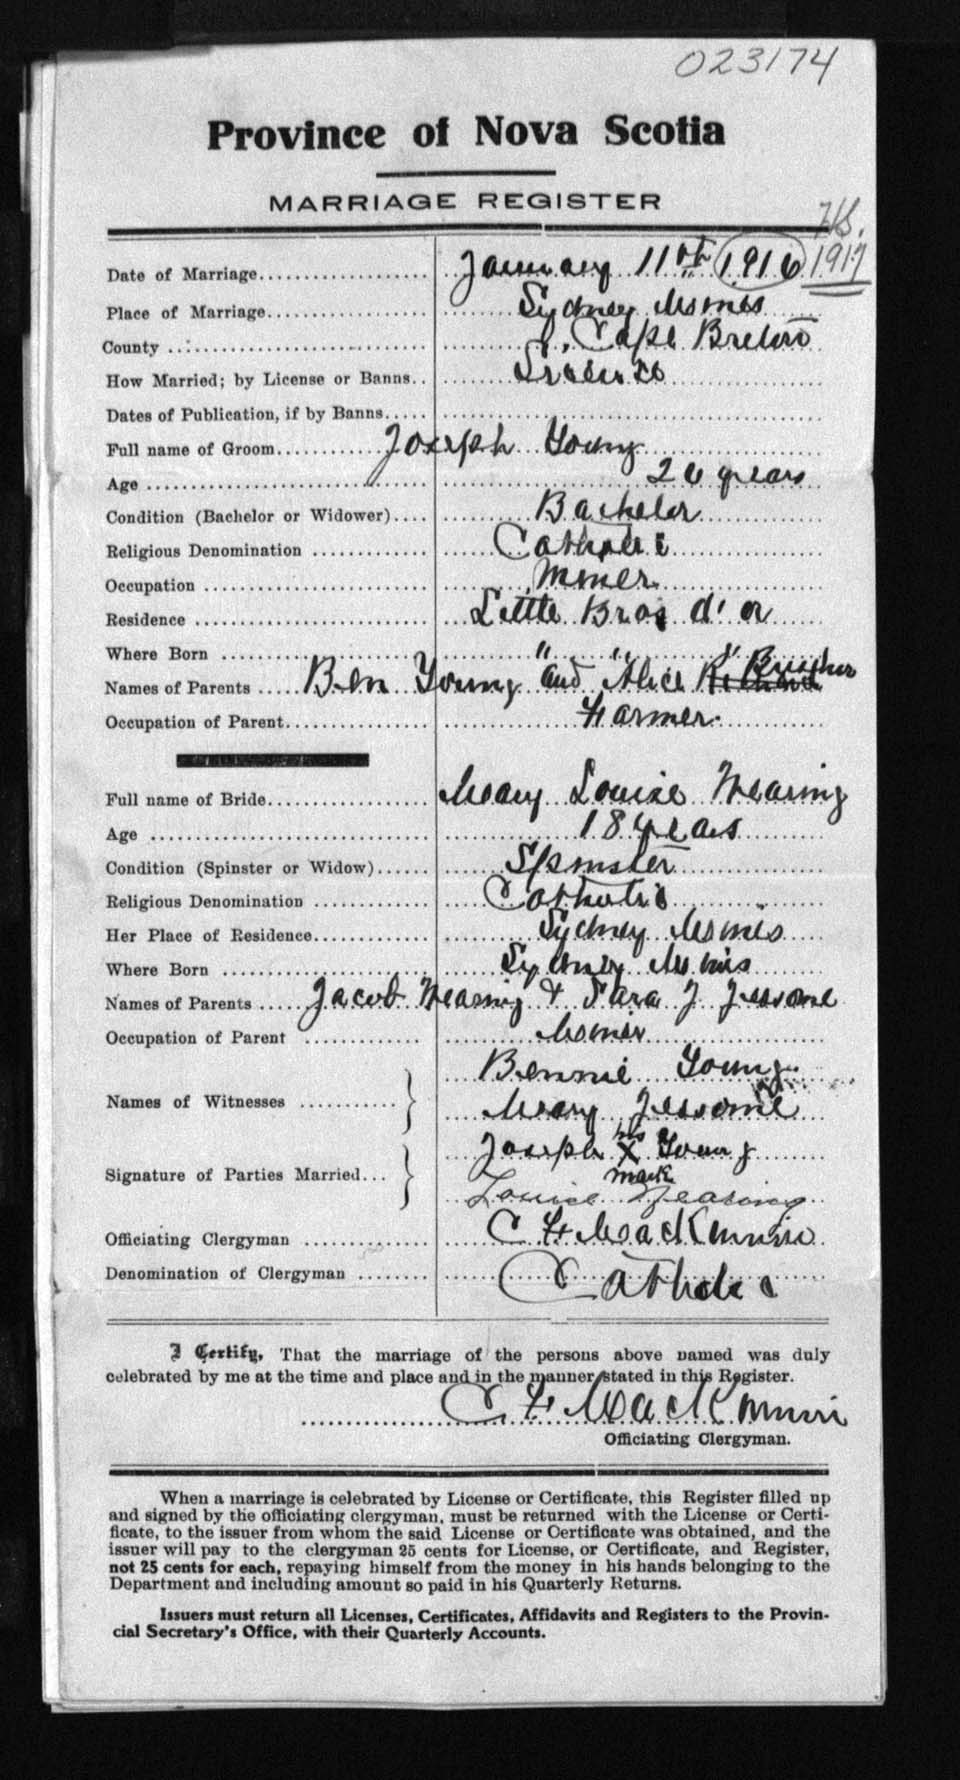 023174
Province of Nova Scotia
MARRIAGE REGISTER
Date of Marriage January 11th 1916 1917
Place of Marriage Sydney Mines
County Cape Breton
How Married; by License or Banns License
Dates of Publication, if by Banns
Full name of Groom Joseph Young
Age 26 years
Condition (Bachelor or Widower) Bachelor
Religious Denomination Catholic
Occupation Miner
Residence Little Bras d'or
Where Born " " "
Names of Parents Ben Young and Alice
Occupation of Parent Farmer.
Full name of Bride Mary Louise Nearing
Age 18 years
Condition (Spinster or Widow) Spinster
Religious Denomination Catholic
Her Place of Residence Sydney Mines
Where Born Sydney Mines
Names of Parents Jacob Nearing & Sara J Jessome
Occupation of Parent Miner
Names of Witnesses Bennie Young
Mary Jessome
Signature of Parties Married Joseph his X mark Young
Louise Nearing
Officiating Clergyman C F MacKinnon
Denomination of Clergyman Catholic
I Certify, That the marriage of the persons above named was duly
celebrated by me at the time and place and in the manner stated in this Register.
C F MacKinnon
Officiating Clergyman.
When a marriage is celebrated by License or Certificate, this Register filled up
and signed by the officiating clergyman, must be returned with the License or Certi-
ficate, to the issuer from whom the said License or Certificate was obtained, and the
issuer will pay to the clergyman 25 cents for License, or Certificate, and Register,
not 25 cents for each, repaying himself from the money in his hands belonging to the
Department and including amount so paid in his Quarterly Returns.
Issuers must return all Licenses, Certificates, Affidavits and Registers to the Provin-
cial Secretary's Office, with their Quarterly Accounts.